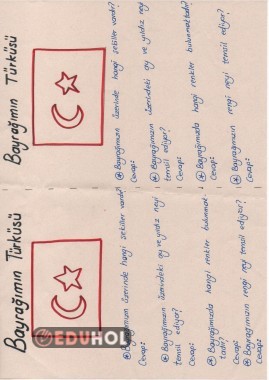 Bayrağımın Türküsü
⊛ Bayrağımızın üzerinde hangi şekiller vardır?
Cevap:
⊛ Bayrağımızın üzerindeki ay ve yıldız neyi
temsil ediyor?
Cevap:
⊛ Bayrağımızda hangi renkler bulunmaktadır?
Cevap:
⊛ Bayrağımızın rengi neyi temsil ediyor?
Cevap:
Bayrağımın Türküsü
⊛ Bayrağımızın üzerinde hangi şekiller vardır?
Cevap:
⊛ Bayrağımızın üzerindeki ay ve yıldız neyi
temsil ediyor?
Cevap:
⊛ Bayrağımızda hangi renkler bulunmak-
tadır?
Cevap:
⊛ Bayrağımızın rengi neyi temsil ediyor?
Cevap:
EDUHOL